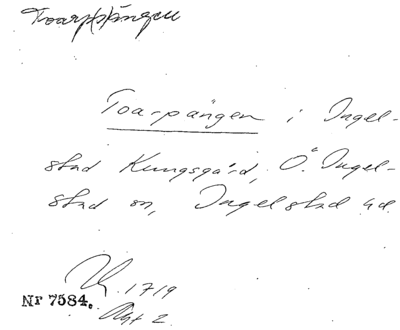 Toarp(p)ängen
Toarpängen i Ingel-
stad Kungsgård, Ö. Ingel-
stad sn, Ingelstad hd.
1719
Nr 7584.
Akt 2